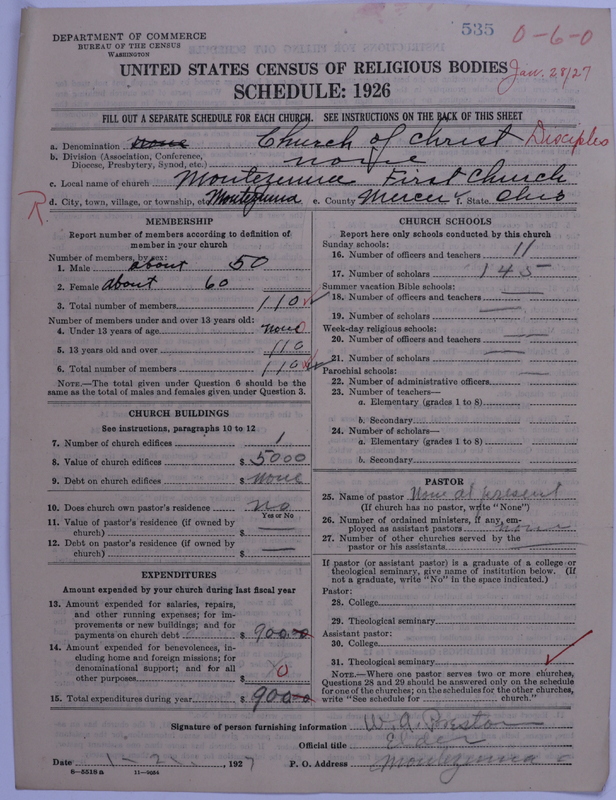 535
O-6-0
DEPARTMENT OF COMMERCE
BUREAU OF THE CENSUS
WASHINGTON
UNITED STATES CENSUS OF RELIGIOUS BODIES
Jan. 28/27
SCHEDULE: 1926
FILL OUT A SEPARATE SCHEDULE FOR EACH CHURCH. SEE INSTRUCTIONS ON THE BACK OF THIS SHEET
a. Denomination none Church of Christ Disciples
b. Division (Association, Conference, Diocese, Presbytery, Synod, etc.) none
c. Local name of church Montezuma First Church
R. d. City, town, village, or township, etc. Montezuma e. County Mercer f. State Ohio
MEMBERSHIP
Report number of members according to definition of member in your church
Number of members, by sex:
1. Male about 50
2. Female about 60
3. Total number of members 110
Number of members under and over 13 years old:
4. Under 13 years of age none 0
5. 13 years old and over 110
6. Total number of members 110
NOTE.—The total given under Question 6 should be the same as the total of males and females given under Question 3.
CHURCH BUILDINGS
See instructions, paragraphs 10 to 12
7. Number of church edifices 1
8. Value of church edifices $ 5000
9. Debt on church edifices $ none
10. Does church own pastor's residence no
Yes or No
11. Value of pastor's residence (if owned by church) $ —
12. Debt on pastor's residence (if owned by church) $ —
EXPENDITURES
Amount expended by your church during last fiscal year
13. Amount expended for salaries, repairs, and other running expenses; for improvements or new buildings; and for payments on church debt $ 900.00
14. Amount expended for benevolences, including home and foreign missions; for denominational support; and for all other purposes $ 0
15. Total expenditures during year $ 900
CHURCH SCHOOLS
Report here only schools conducted by this church
Sunday schools:
16. Number of officers and teachers 11
17. Number of scholars 145
Summer vacation Bible schools:
18. Number of officers and teachers —
19. Number of scholars —
Week-day religious schools:
20. Number of officers and teachers —
21. Number of scholars —
Parochial schools:
22. Number of administrative officers
23. Number of teachers—
a. Elementary (grades 1 to 8)
b. Secondary
24. Number of scholars—
a. Elementary (grades 1 to 8)
b. Secondary
PASTOR
25. Name of pastor None at present
(If church has no pastor, write "None")
26. Number of ordained ministers, if any, employed as assistant pastors none
27. Number of other churches served by the pastor or his assistants —
If pastor (or assistant pastor) is a graduate of a college or theological seminary, give name of institution below. (If not a graduate, write "No" in the space indicated.)
Pastor:
28. College
29. Theological seminary
Assistant pastor:
30. College
31. Theological seminary
NOTE.—Where one pastor serves two or more churches, Questions 28 and 29 should be answered only on the schedule for one of the churches; on the schedules for the other churches, write "See schedule for church."
Signature of person furnishing information W. A. Preston
Official title Elder
Date 1-2 , 1927 P. O. Address Montezuma O
8-5518a 11-9054